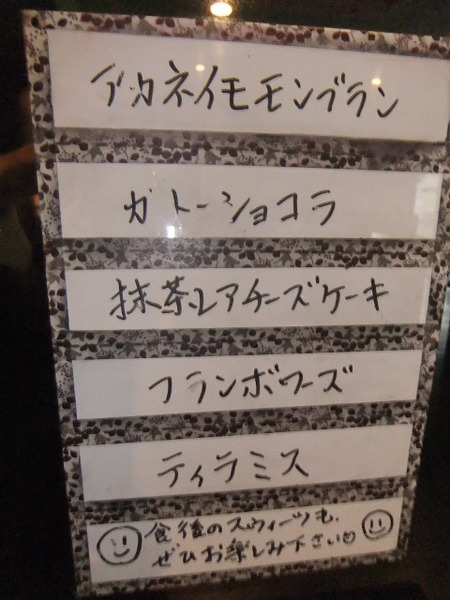 アカネイモモンブラン
ガトーショコラ
抹茶レアチーズケーキ
フランボワーズ
ティラミス
食後のスウィーツも
ぜひお楽しみ下さい♡